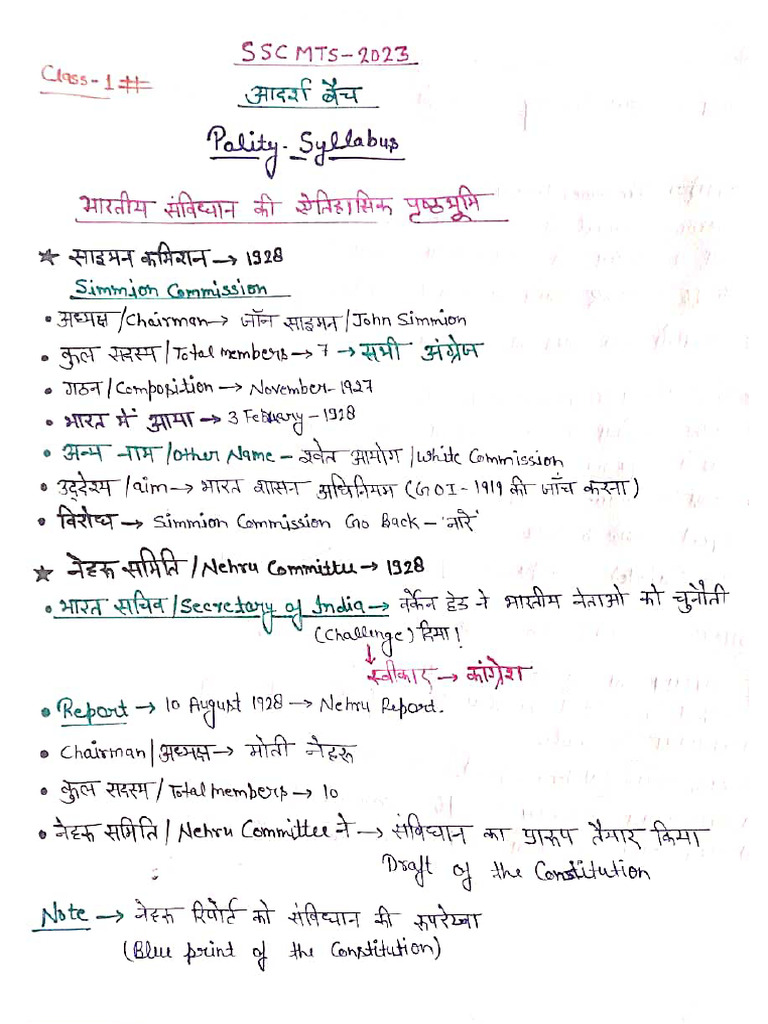 SSC MTS-2023
Class-1#
आदर्श बैच
Pality-Syllabus
भारतीय संविधान की ऐतिहासिक पृष्ठभूमि
★ साइमन कमिशन → 1928
Simmion Commission
• अध्यक्ष/Chairman → जॉन साइमन/John Simmion
• कुल सदस्य/Total members → 7 → सभी अंग्रेज
• गठन/Composition → November-1927
• भारत में आया → 3 February-1928
• अन्य नाम/Other Name - श्वेत आयोग/White Commission
• उद्देश्य/aim → भारत शासन अधिनियम (GOI-1919 की जाँच करना)
• विरोध → Simmion Commission Go Back - 'नारे'
★ नेहरू समिति/Nehru Committee → 1928
• भारत सचिव/Secretary of India → वर्केन हेड ने भारतीय नेताओ को चुनौती
(Challenge) दिया!
↓
स्वीकार → कांग्रेश
• Report → 10 August 1928 → Nehru Report.
• Chairman/अध्यक्ष → मोती नेहरू
• कुल सदस्य/Total members → 10
• नेहरू समिति/Nehru Committee ने → संविधान का प्रारूप तैयार किया
Draft of the Constitution
Note → नेहरू रिपोर्ट को संविधान की रूपरेखा
(Blue print of the Constitution)